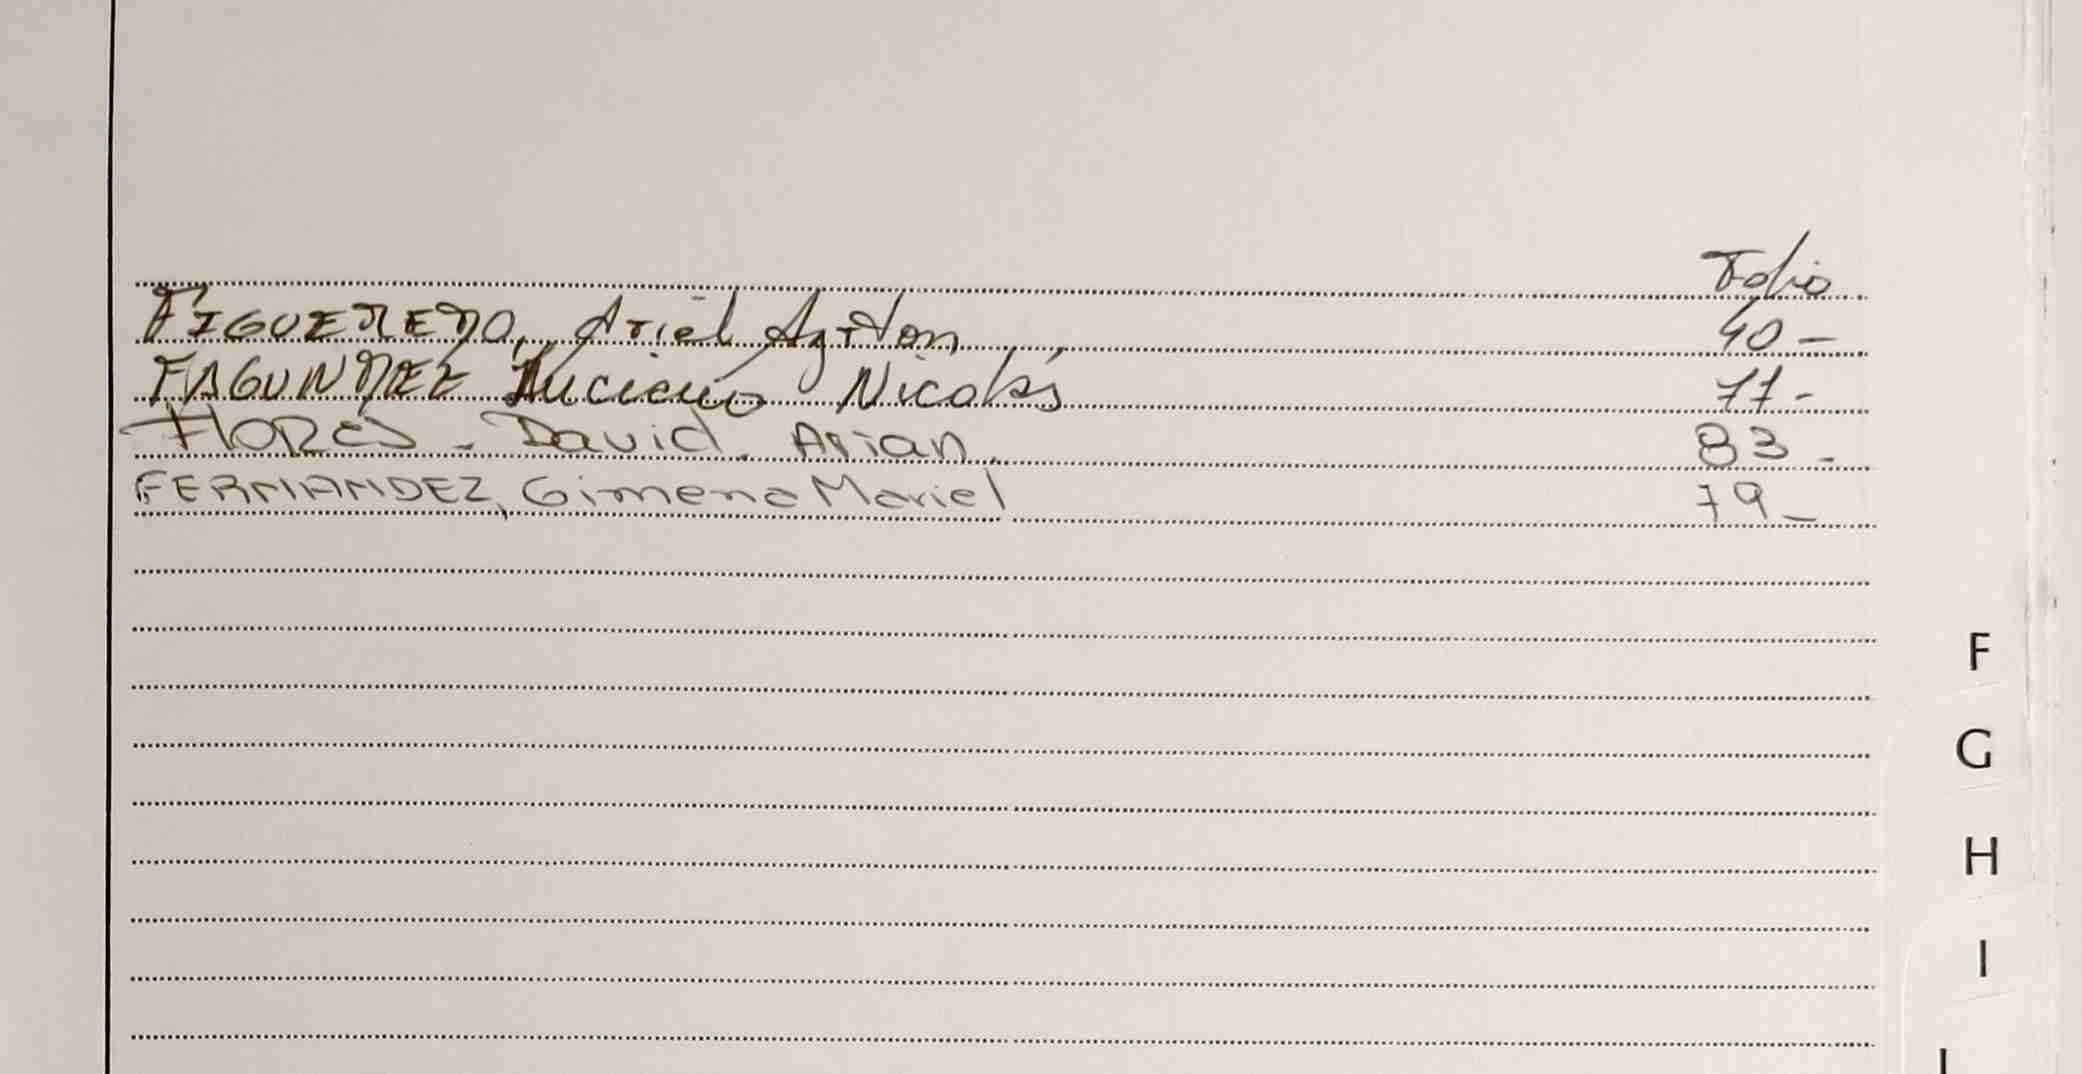 Folio
FIGUEREDO, Ariel Ayrton 40-
FAGUNDEZ Luciano Nicolás 77-
FLORES - David. Arian. 83-
FERNANDEZ, Gimena Mariel 79-
F
G
H
I